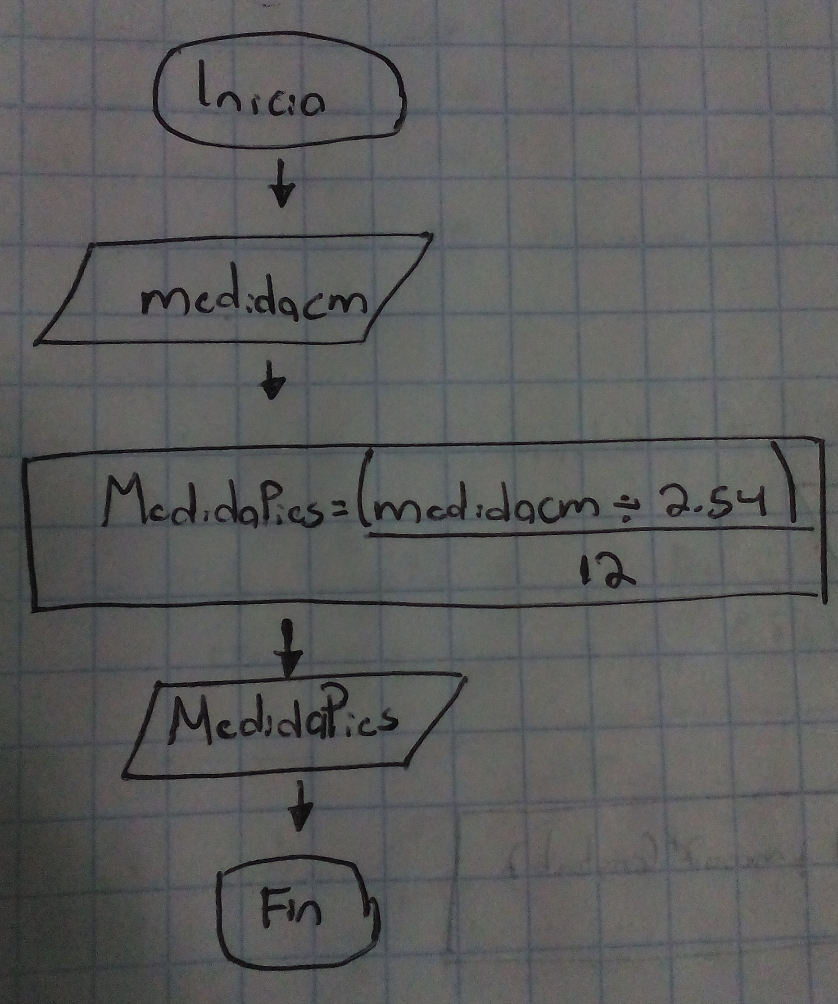 Inicia
medidacm
MedidaPies=(medidacm ÷ 2.54)
12
MedidaPies
Fin